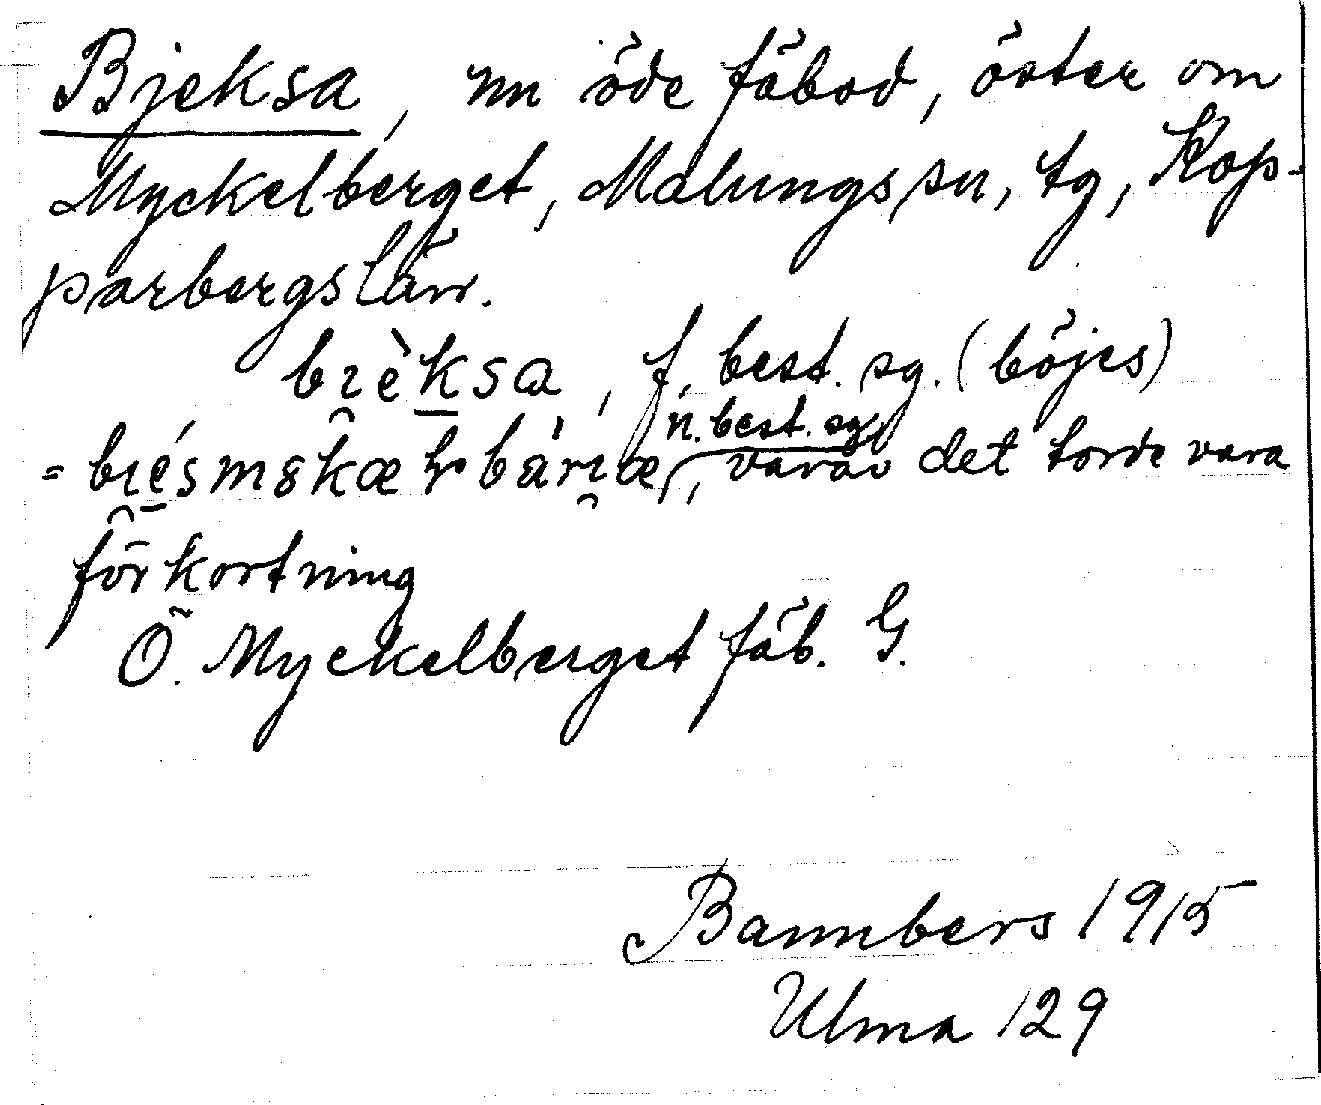 Bjeksa, nu öde fäbod, öster om
Myckelberget, Malungs sn, tg, Kop-
parbergs län.
bıèksa, f. best. sg. (böjes)
n. best. sg.
= bıésmskær bàrıæ, varav det torde vara
förkortning
Ö. Myckelberget fäb. G.
Bannbers 1915
Ulma 129